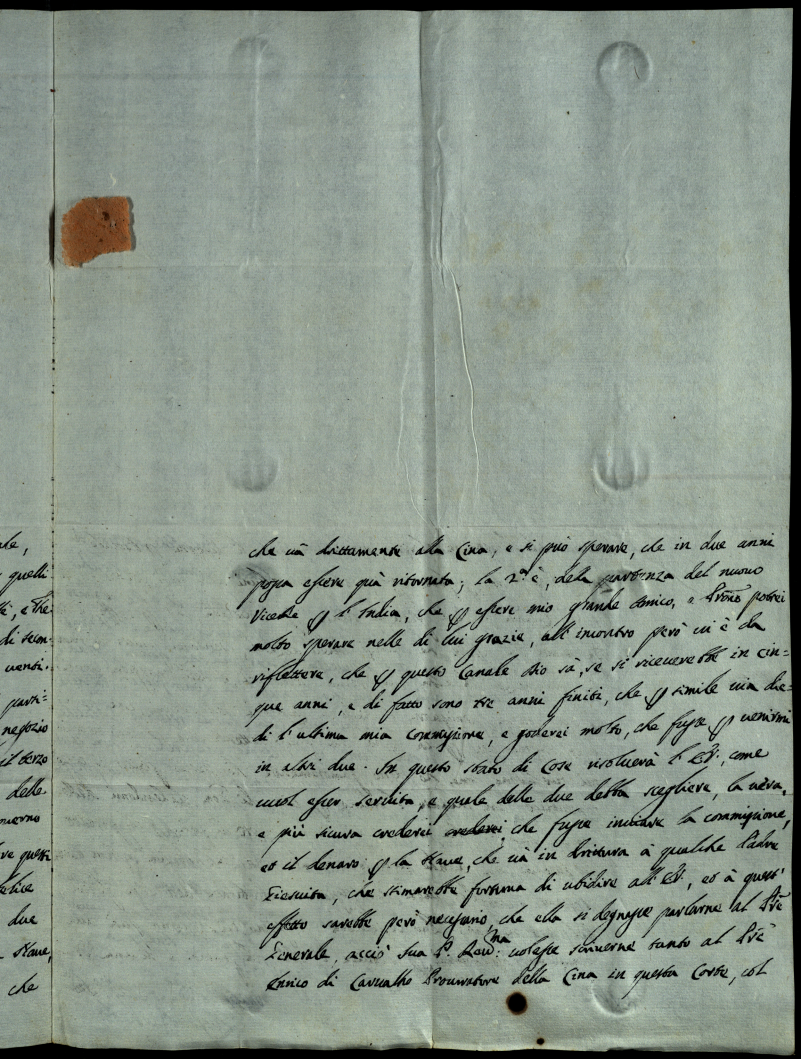 che và drittamente alla Cina, e si può sperare, che in due anni
possa essere quà ritornata; la 2.ª è, della partenza del nuovo
Vicerè ꝑ l'India, che ꝑ essere mio grande Amico, e Prone potrei
molto sperare nelle di lui grazie, all'incontro però vi è da
riflettere, che ꝑ questo Canale Dio sà, se si riceverebbe in cin=
que anni, e di fatto sono tre anni finiti, che ꝑ simile via die=
di l'ultima mia commissione, e goderei molto, che fusse ꝑ venirmi
in altri due. In questo stato di Cose risolverà l'EV., come
vuol esser servita, e quale delle due debba scegliere, la vera,
e più sicura crederei crederei, che fusse inviare la commissione,
et il denaro ꝑ la Nave, che và in drittura à qualche Padre
Giesuita, che stimarebbe fortuna di ubidire all'EV., et à quest'
effetto sarebbe però necessario, che ella si degnasse parlarne al Pre
Generale, acciò Sua P. Rev.ma volesse scriverne tanto al Pre
Enrico di Carvalho Procuratore della Cina in questa Corte, col
ale,
quelli
di
venti.
parti=
negozio
il terzo
delle
overno
questi
elice
due
Nave,
che